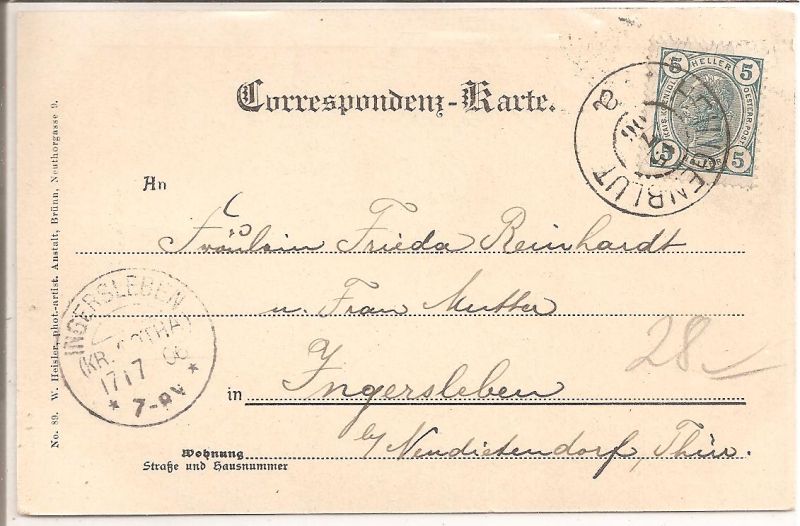 Correspondenz-Karte.
5 HELLER 5
KAIS. KOENIGL.
OESTERR. POST
5 5
ENBLUT
An
Fräulein Frieda Reinhardt
u. Frau Mutter
in Ingersleben
b/ Neudietendorf, Thür.
Wohnung
Straße und Hausnummer
28
INGERSLEBEN
(KR. GOTHA)
17 7 06
* 7-8V *
No. 89. W. Heisler, phot.-artist. Anstalt, Brünn, Neuthorgasse 9.